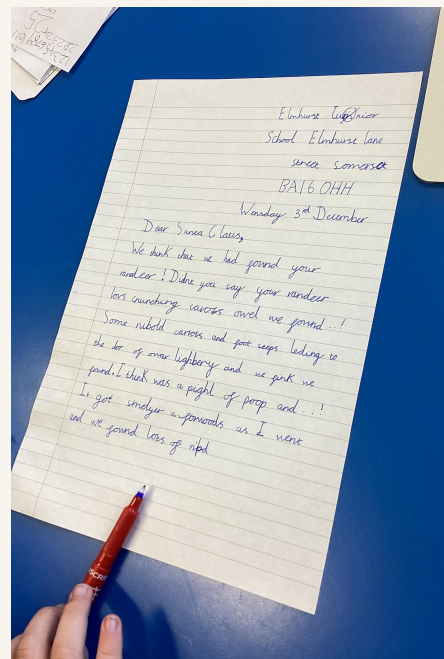 Elmhurse Junior
School Elmhurse lane
street Somerset
BA16 OHH
Wensday 3rd December
Dear Sanea Claus,
We think that we had found your
randeer! Didne you say your randeer
lovs crunching carots owel we found ..!
Some nibold carrots and foot seeps leding to
the dor of omar lighbery and we fink we
found. I think was a pight of poop and ...!
It got smelyer as I went
and we found lots of nibd